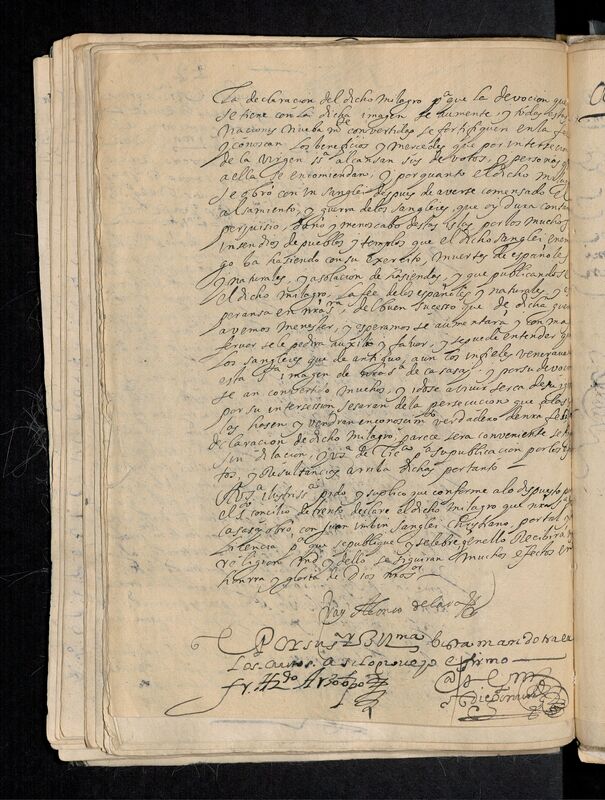 La declaracion del dicho milagro pª que la devocion que
se tiene con la dicha imagen se aumente, y todas estas
naciones nueba mte convertidas se fortifiquen en la fe
y conoscan los beneficios y mercedes que por interse
de la virgen ssª alcansan sus devotos, y personas q
a ella se encomiendan, y por quanto el dicho mila
se obró con un sangley despues de averse comensado el
alsamiento, y guerra de los sangleyes, que oy dura con tan
perjuisio, daño y menoscabo destas islas por los muchos
insendios de pueblos y templos que el dicho sangley enemi
go ba hasiendo con su exercito, muertes de españoles
y naturales, y asolacion de hasiendas, y que publicandose
el dicho milagro, la fee de los españoles y naturales, y es
peransa en nrª srª, del buen sucesso que de dicha guerra
avemos menester, y esperamos se aumentará y con ma
fervor se le pedira auxilio y favor, y se puede entender que
los sangleyes que de antiguo, aun los infieles veneravan
esta sª imagen de nrª srª de casasay, y por su devocion
se an convertido muchos, y
por su intersession sesaran de la persecucion que a las
Islas hasen y vendran en conosimto verdadero de nrª sª fe
declaracion de dicho milagro parece sera conveniente se haga
sin dilacion, y pª su publicacion por los
tos, y Resultancias arriba dichas por tanto —
A Vsª Illustrissª pido, y suplico que conforme a lo dispuesto por
el sto concilio de trento declare el dicho milagro que nrª srª
casasay obró con Juan sangley christiano, por tal y
pª que se publique y selebre, en ello Recibira
religion md y dello se siguiran muchos efectos en
honrra y gloria de Dios nrosr
fray Alonso de
Por su sª Illma bista mando tra
los autos a se lo proveyo y firmo
fr. Hdo Arzobpo
Ante mi
Diego